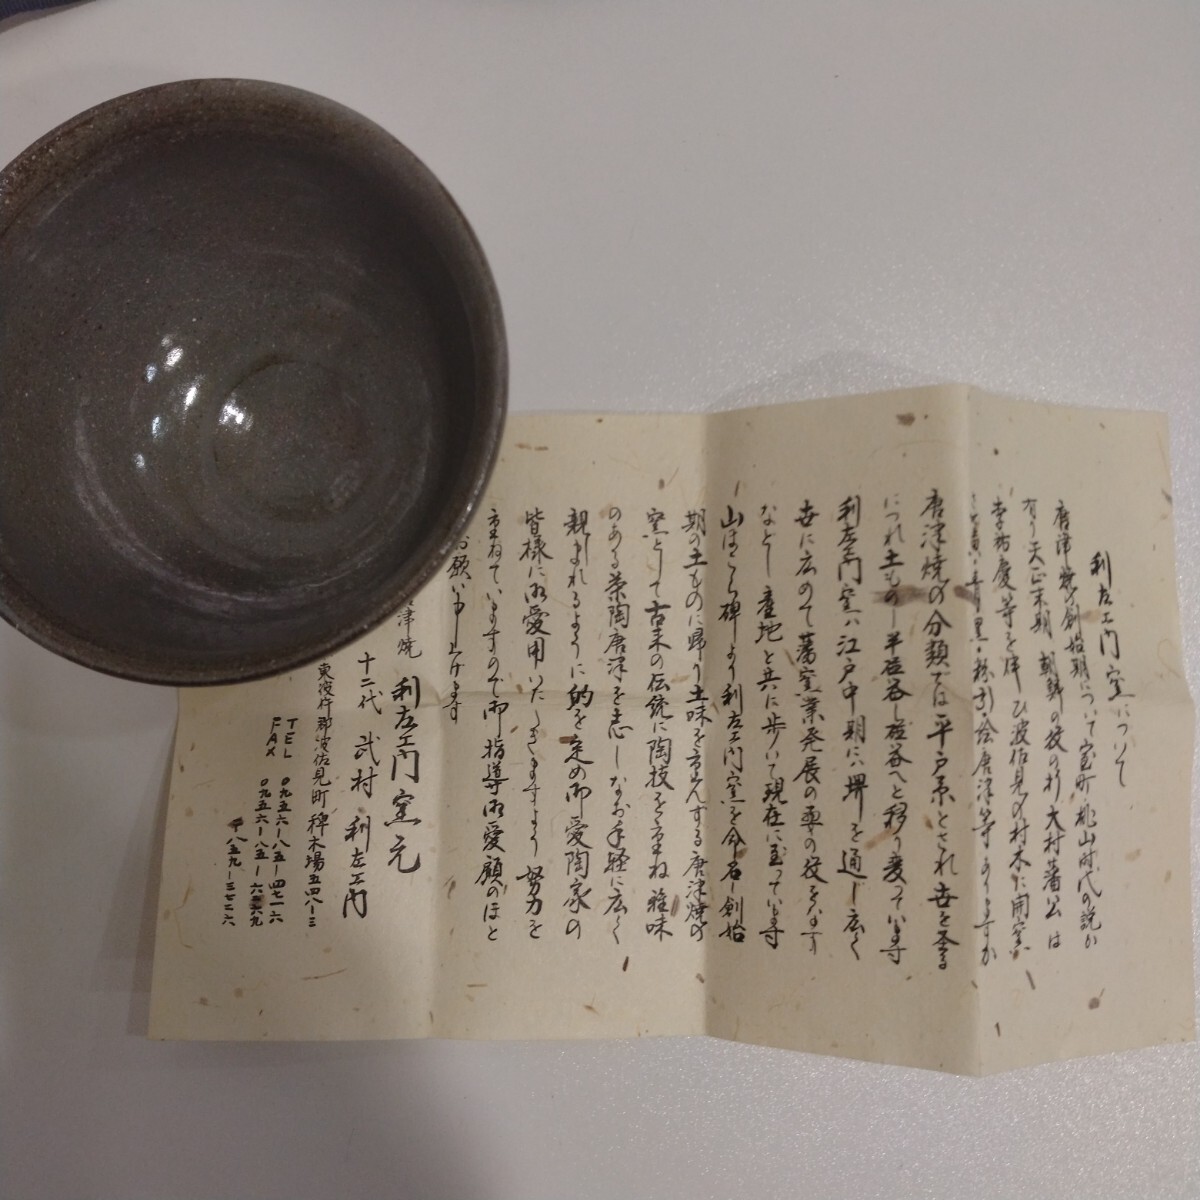 利左エ門窯について
唐津焼の創始期について室町桃山時代の説が
有り天正末期 朝鮮の役の折 大村藩公は
李祐慶等を伴ひ波佐見の村木に開窯
黒・粉引・絵唐津等ありますが
唐津焼の分類では平戸系とされ世を経る
につれ土もの半磁器磁器へと移り変っています
利左エ門窯は江戸中期に堺を通じ広く
世に広めて藩窯業発展の要の役をなす
などし産地と共に歩いて現在に至っています
山ほこら碑より利左エ門窯を命名し創始
期の土ものに帰り土味を大事にする唐津焼の
窯として古来の伝統に陶技を重ね雅味
のある茶陶唐津を志しなお手軽に広く
親しまれるように的を定め御愛陶家の
皆様に御愛用いただきますよう努力を
重ねていますので御指導御愛顧のほど
お願い申し上げます
津焼 利左エ門窯元
十二代 武村利左エ門
東彼杵郡波佐見町稗木場五四八-三
TEL 〇九五六-八五-四七一六
FAX 〇九五六-八五-六六六九
〒八五九-三七二六